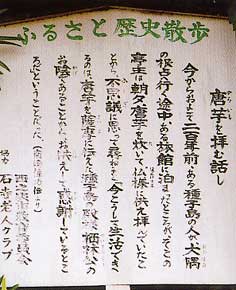 ふるさと歴史散歩
唐芋を拝む話し
今からおよそ二百年前ある種子島の人が大隅
の根占へ行く途中ある旅館に泊まったところがそこの
亭主は朝夕唐芋を炊いて仏様に供え拝んでいた
とか不思議に思って尋ねると今こうして生活できる
のは、唐芋を薩摩に伝えた種子島の
お陰であることから、お供えして感謝しているとこ
ろだということだった。
協力
西之表市教育委員会
石寺老人クラブ